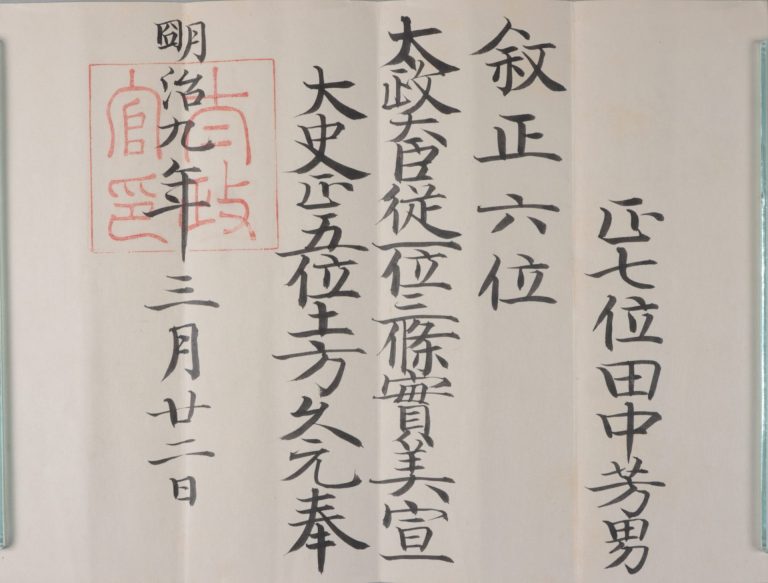 正七位田中芳男
敘正六位
太政大臣従一位三條實美宣
大史正五位土方久元奉
明治九年三月廿二日
太政官印